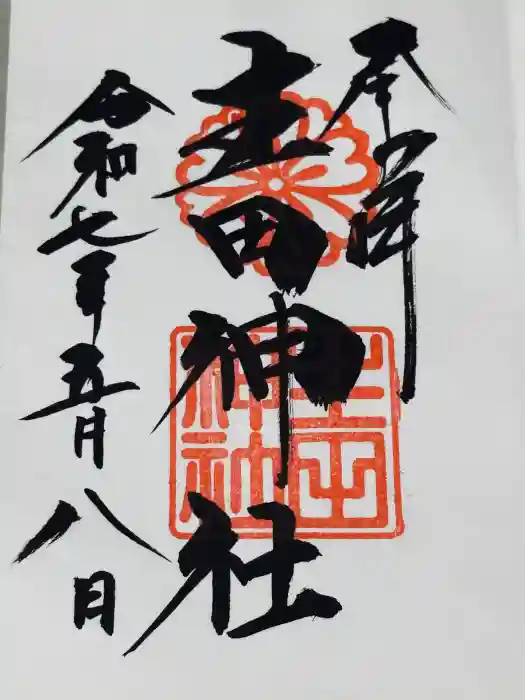 奉拝
生田神社
生田
神社
令和七年五月八日